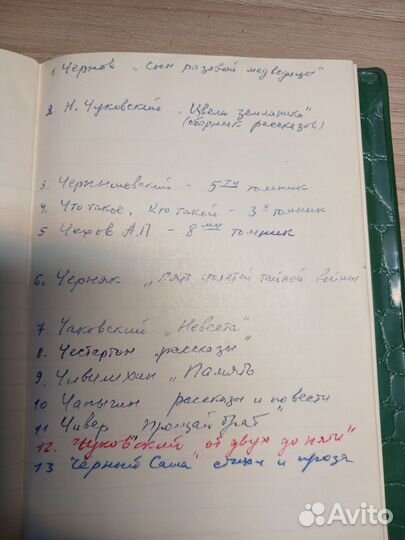 1. Чернов „Сын розовой медведицы"
2. Н. Чуковский „Цвела земляника"
(сборник рассказов)
3. Чернышевский - 5ти томник
4. Что такое, Кто такой - 3х томник
5 Чехов А.П - 8ми томник
6. Черняк „Пять столетий тайной войны
7 Чаковский „Невеста"
8. Честертон „рассказы"
9 Чивилихин „Память
10 Чапыгин рассказы и повести
11 Чивер „Прощай брат"
12. Чуковский „от двух до пяти"
13 Черный Саша" стихи и проза
Avito